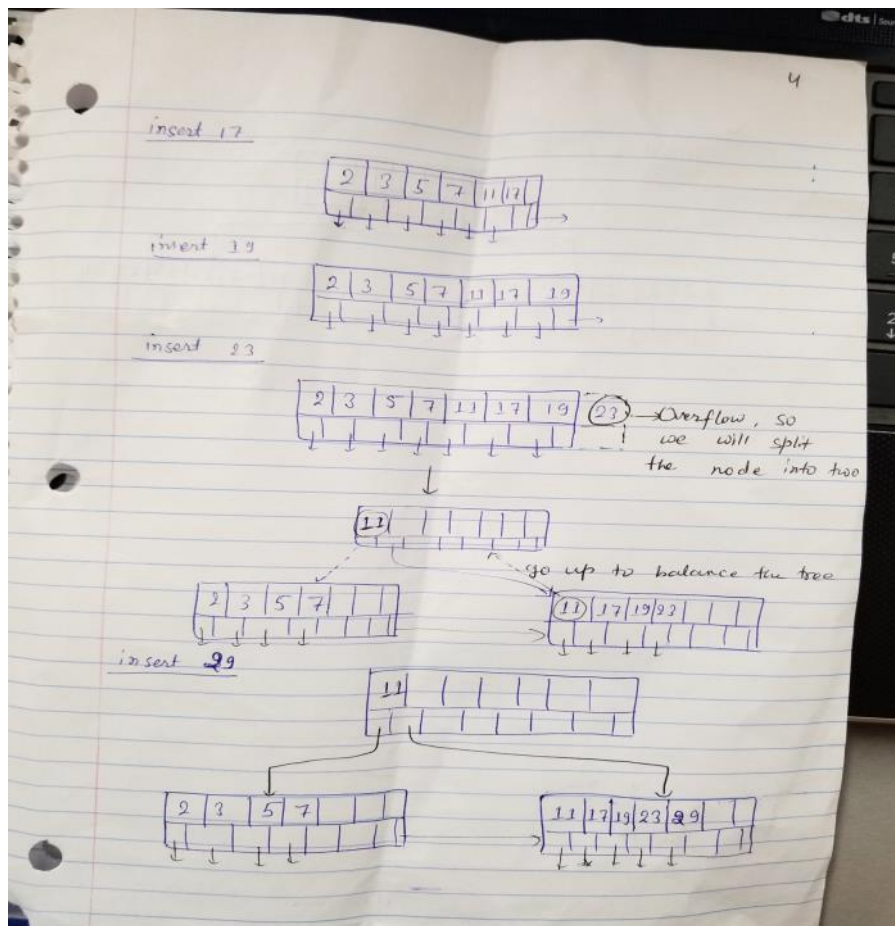 dts
4
insert 17
2 3 5 7 11 17
insert 19
2 3 5 7 11 17 19
insert 23
2 3 5 7 11 17 19 23 → Overflow, so
we will split
the node into two
11
go up to balance the tree
2 3 5 7 11 17 19 23
insert 29
11
2 3 5 7 11 17 19 23 29